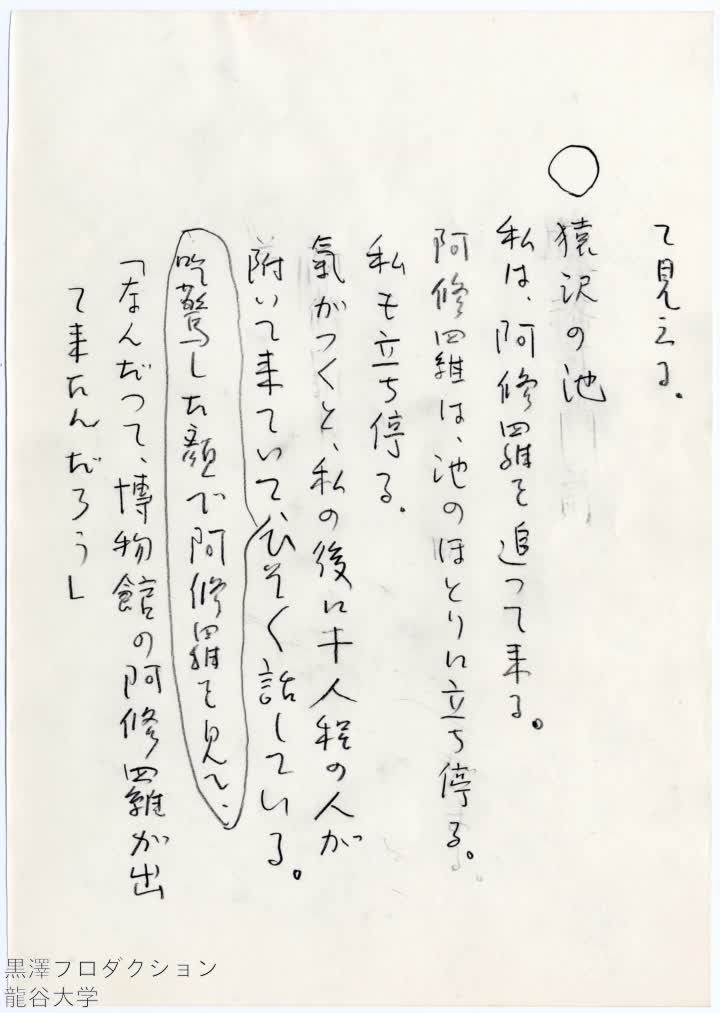 て見える。
○
猿沢の池
私は、阿修羅を追つて来る。
阿修羅は、池のほとりに立ち停る。
私も立ち停る。
氣がつくと、私の後に十人程の人が
附いて来ていて、ひそく話している。
吃驚した顔で阿修羅を見て、
「なんだつて、博物館の阿修羅が出
て来たんだろう」
黒澤プロダクション
龍谷大学